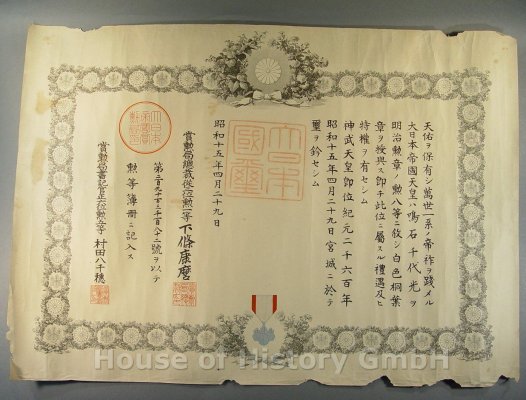 天佑ヲ保有シ萬世一系ノ帝祚ヲ踐メル
大日本帝國天皇ハ鳴石千代光ヲ
明治勲章ノ勲八等ニ敘シ白色桐葉
章ヲ授與ス即チ此位ニ屬スル禮遇及ヒ
特權ヲ有セシム
神武天皇即位紀元二千六百年
昭和十五年四月二十九日宮城ニ於テ
璽ヲ鈐セシム
大日本
國璽
昭和十五年四月二十九日
賞勲局總裁從四位勲二等下條康麿
勲等簿冊ニ記入ス
賞勲局書記官正五位勲五等 村田八千穂
House of History GmbH